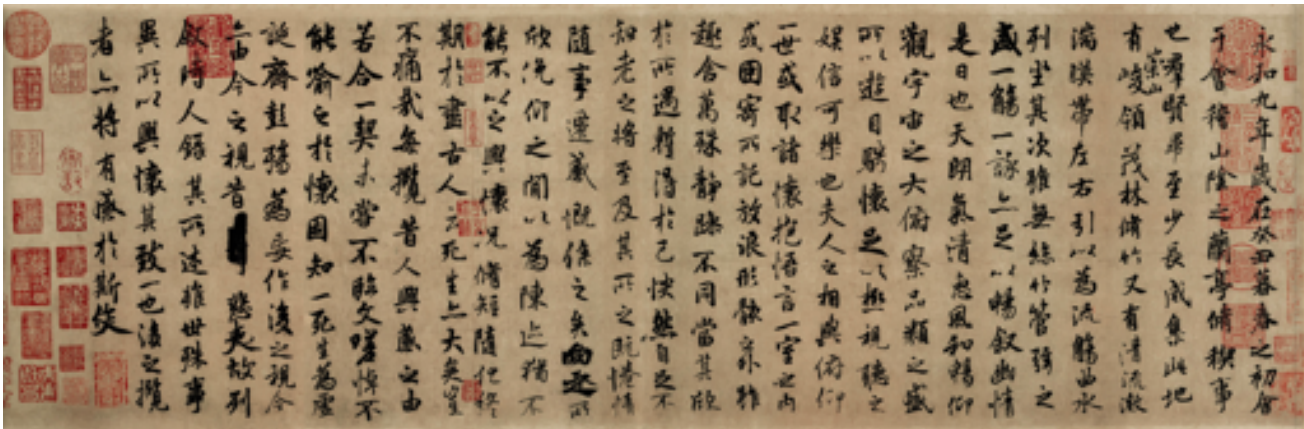 永和九年歲在癸丑暮春之初會
于會稽山陰之蘭亭脩禊事
也群賢畢至少長咸集此地
有崇山峻領茂林脩竹又有清流激
湍暎帶左右引以為流觴曲水
列坐其次雖無絲竹管弦之
盛一觴一詠亦足以暢敘幽情
是日也天朗氣清惠風和暢仰
觀宇宙之大俯察品類之盛
所以遊目騁懷足以極視聽之
娛信可樂也夫人之相與俯仰
一世或取諸懷抱悟言一室之內
或因寄所託放浪形骸之外雖
趣舍萬殊靜躁不同當其欣
於所遇蹔得於己怏然自足不
知老之將至及其所之既惓情
隨事遷感慨係之矣向之所
欣俛仰之閒以為陳跡猶不
能不以之興懷況脩短隨化終
期於盡古人云死生亦大矣豈
不痛哉每攬昔人興感之由
若合一契未嘗不臨文嗟悼不
能喻之於懷固知一死生為虛
誕齊彭殤為妄作後之視今
亦由今之視昔悲夫故列
敘時人錄其所述雖世殊事
異所以興懷其致一也後之攬
者亦將有感於斯文